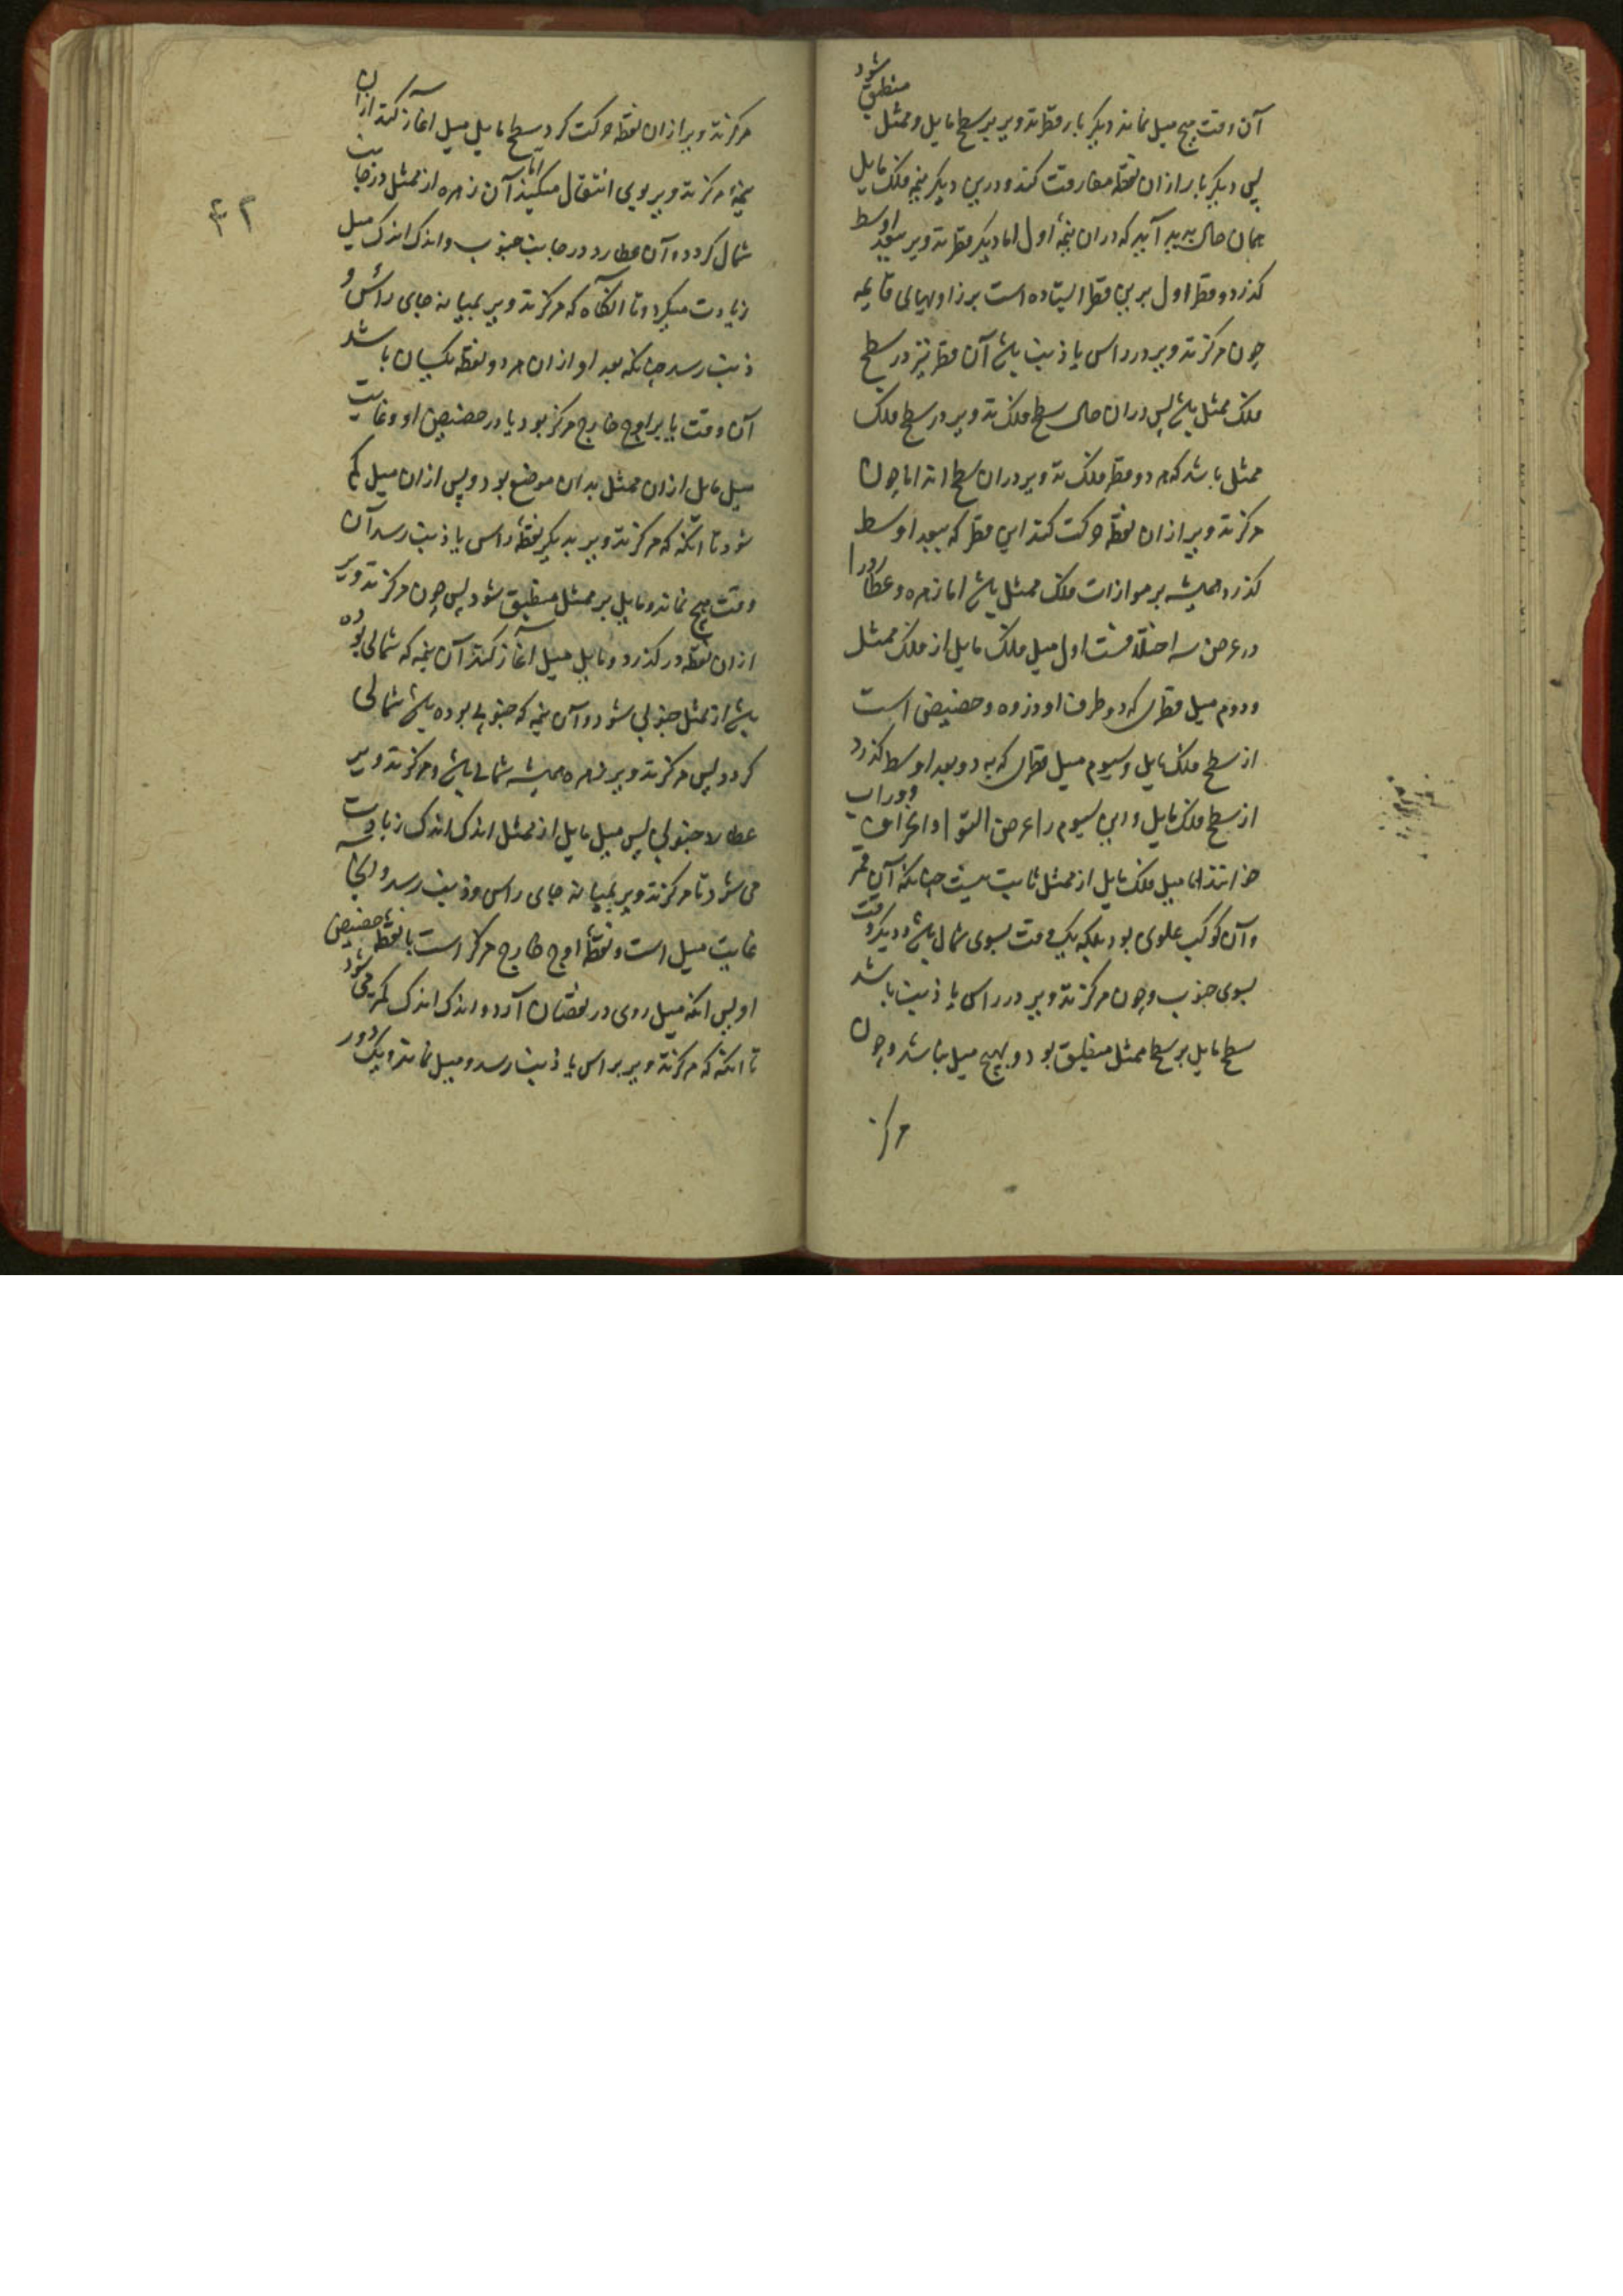 آن وقت هیچ میل نماند دیگر بار قطر تدویر بر سطح مایل و ممثل منطبق شود
پس دیگر بار از آن نقطه مفارقت کند و درین دیگر نیمه فلک مایل
همان حال پدید آید که در آن نیمه اول اما دیگر قطر تدویر ببعد اوسط
گذرد و قطر اول برین قطر ایستاده است بر زاویهای قایمه
چون مرکز تدویر در راس یا ذنب باشد آن قطر نیز در سطح
فلک ممثل باشد پس در آن حال سطح فلک تدویر در سطح فلک
ممثل باشد که هر دو قطر فلک تدویر در آن سطح اند اما چون
مرکز تدویر از آن نقطه حرکت کند این قطر که ببعد اوسط
گذرد همیشه بر موازات فلک ممثل باشد اما زهره و عطارد را
در عرض سه اختلافست اول میل فلک مایل از فلک ممثل
و دوم میل قطری که دو طرف او ذروه و حضیض است
از سطح فلک مایل و سیوم میل قطری که به دو بعد اوسط گذرد
از سطح فلک مایل و این سیوم را عرض التوا و انحراف و وراب
خوانند اما میل فلک مایل از ممثل ثابت نیست چنانکه آن قمر
و آن کوکب علوی بود بلکه یک وقت بسوی شمال باشد و دیگر وقت
بسوی جنوب و چون مرکز تدویر در راس یا ذنب باشد
سطح مایل بر سطح ممثل منطبق بود و هیچ میل نباشد و چون
مرکز
۴۲
مرکز تدویر از آن نقطه حرکت کرد سطح مایل میل آغاز کند از آن
نیمه مرکز تدویر بوی انتقال میکند اما آن زهره از ممثل در جانب
شمال گردد و آن عطارد در جانب جنوب و اندک اندک میل
زیادت میگردد تا آنگاه که مرکز تدویر بمیانه جای راس و
ذنب رسد چنانکه بعد او از آن هر دو نقطه یکسان باشد
آن وقت یا بر اوج خارج مرکز بود یا در حضیض او و غایت
میل مایل از آن ممثل بدان موضع بود و پس از آن میل کم
شود تا آنکه که مرکز تدویر بدیگر نقطه راس یا ذنب رسد آن
وقت هیچ نماند و مایل بر ممثل منطبق شود پس چون مرکز تدویر
از آن نقطه درگذرد و مایل میل آغاز کند آن نیمه که شمالی بوده
باشد از ممثل جنوبی شود و آن نیمه که جنوبی بوده باشد شمالی
گردد پس مرکز تدویر زهره همیشه شمالی باشد و مرکز تدویر
عطارد جنوبی پس میل مایل از ممثل اندک اندک زیادت
می شود تا مرکز تدویر بمیانه جای راس و ذنب رسد و آنجا
غایت میل است و نقطه اوج خارج مرکز است یا نقطه حضیض
او پس آنکه میل روی در نقصان آرد و اندک اندک کمتر می شود
تا آنکه که مرکز تدویر براس یا ذنب رسد و میل نماند و یک دور